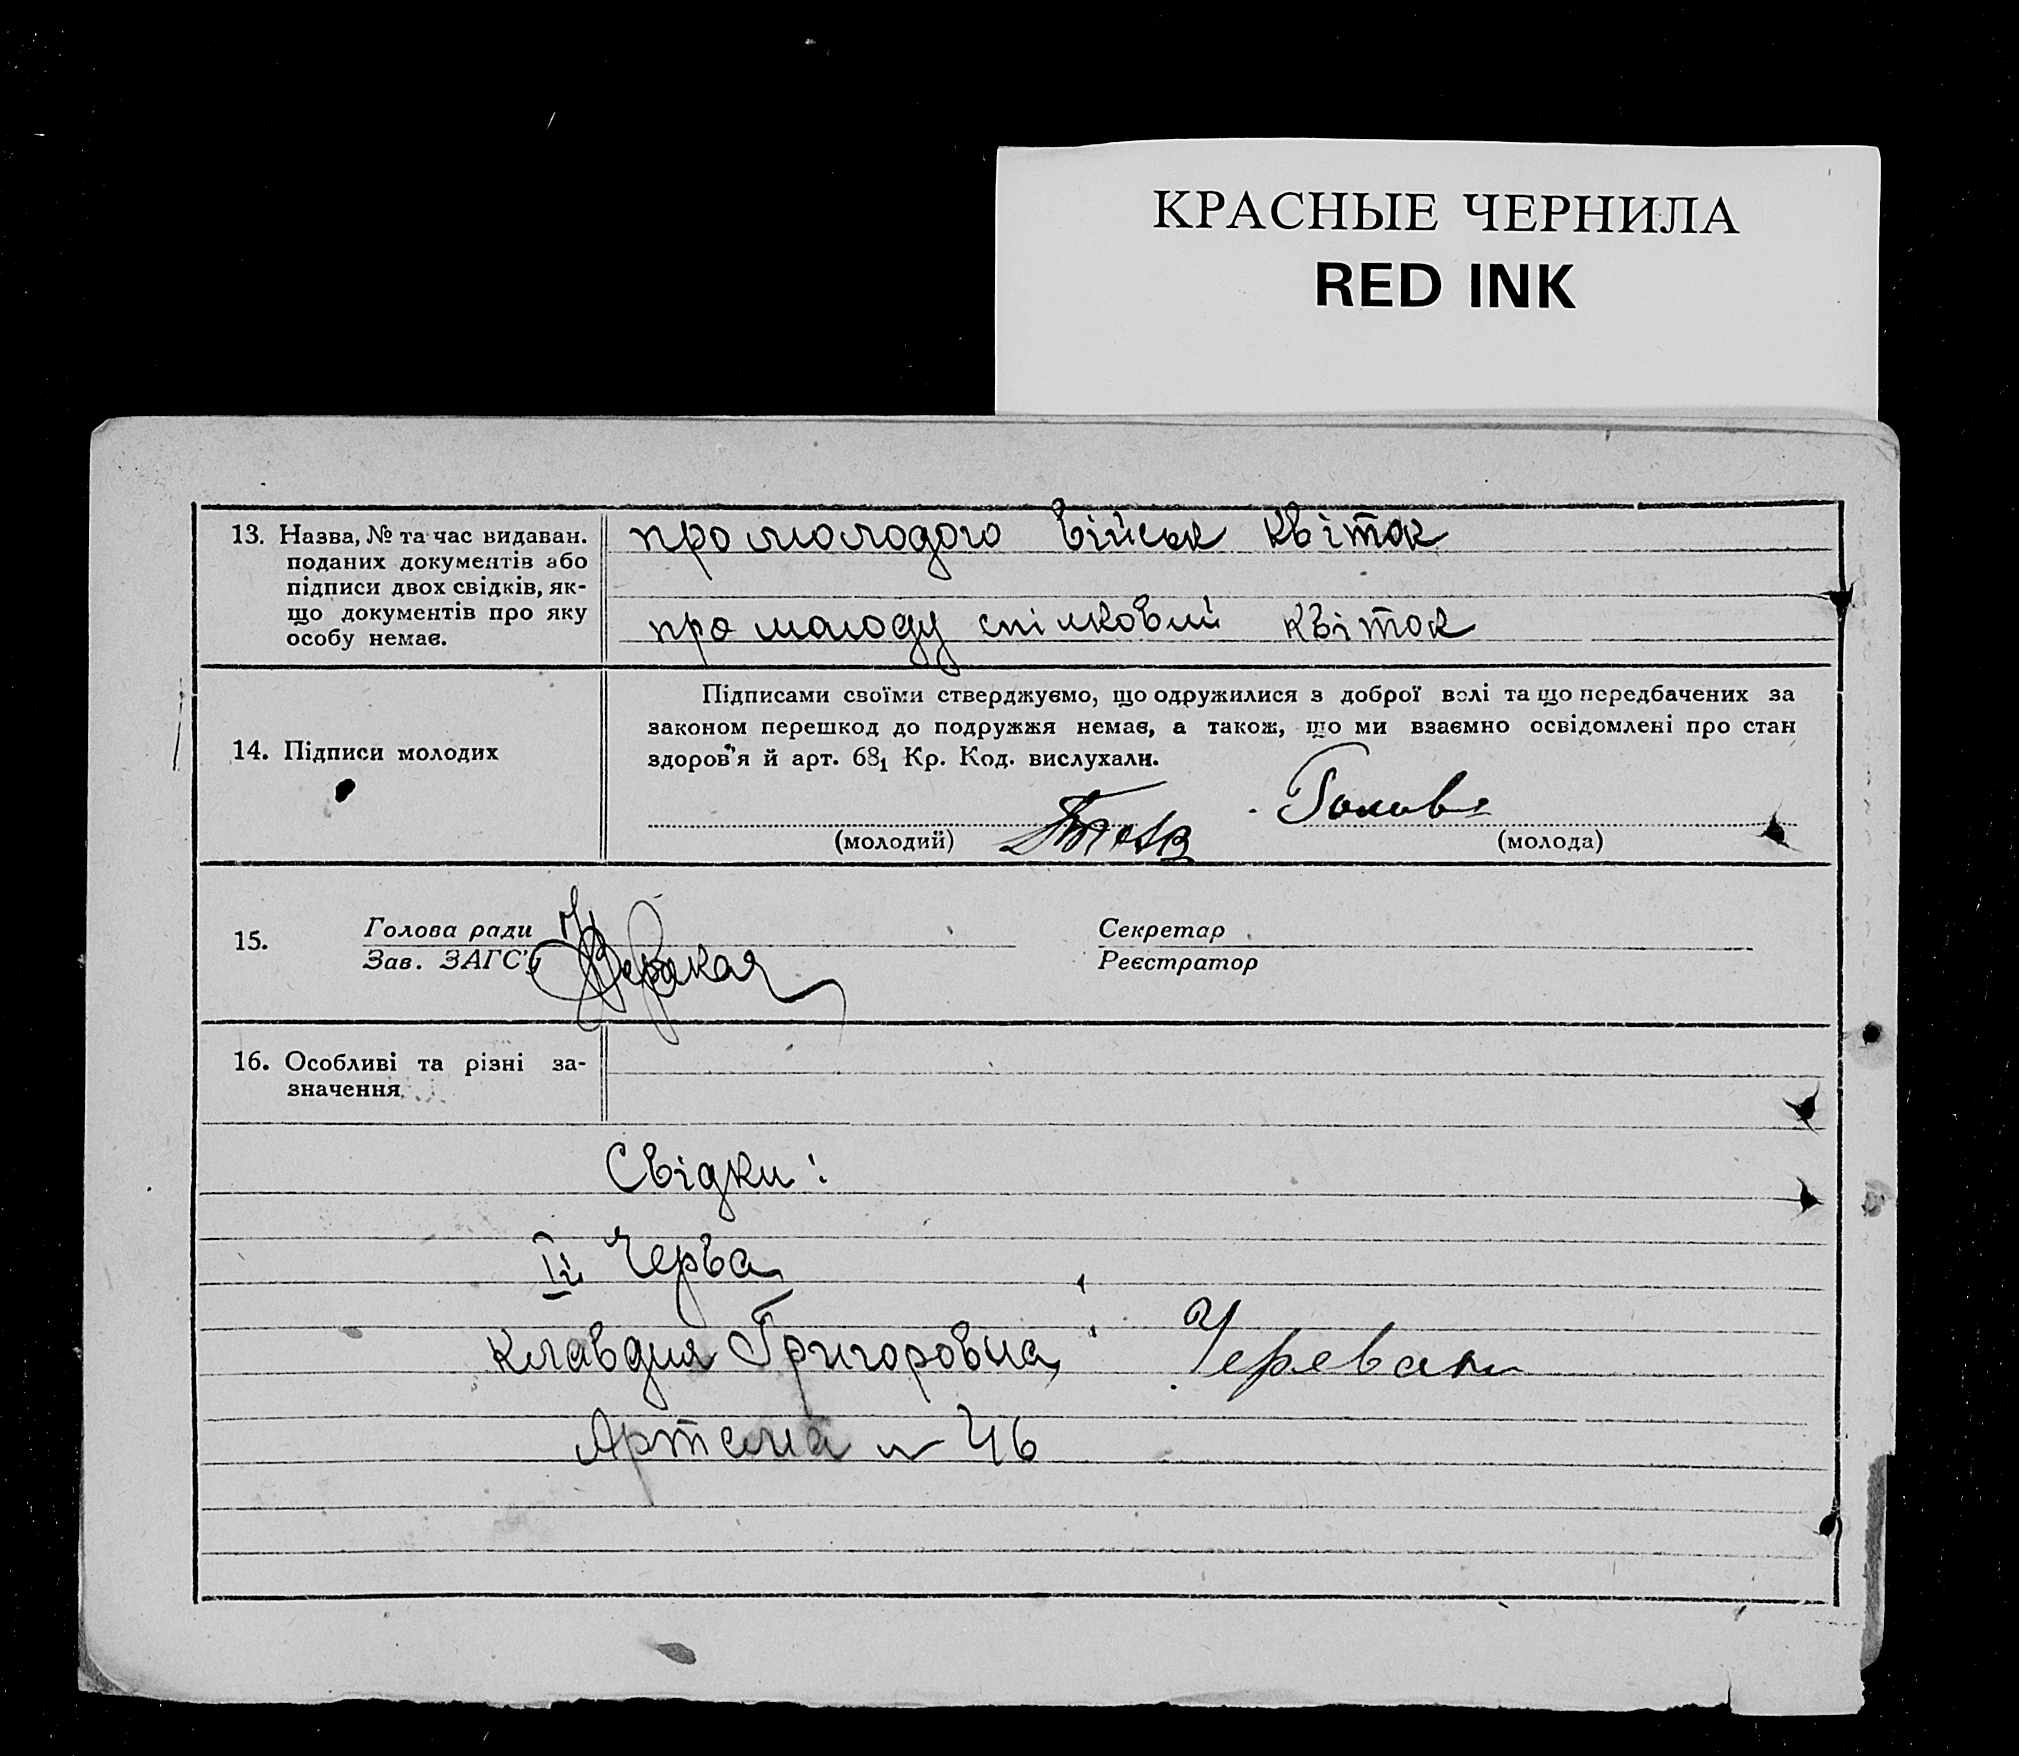 КРАСНЫЕ ЧЕРНИЛА
RED INK
13. Назва, № та час видаван.
поданих документів або
підписи двох свідків, як-
що документів про яку
особу немає.
про молодого військ квіток
про молоду спілковий квіток
14. Підписи молодих
Підписами своїми стверджуємо, що одружилися з доброї волі та що передбачених за
законом перешкод до подружжя немає, а також, що ми взаємно освідомлені про стан
здоров'я й арт. 68₁ Кр. Код. вислухали.
(молодий)
(молода)
15.
Голова ради
Зав. ЗАГС'у
Секретар
Реєстратор
16. Особливі та різні за-
значення
Свідки:
Клавдия Григоровна
Черевань
Артема № 46